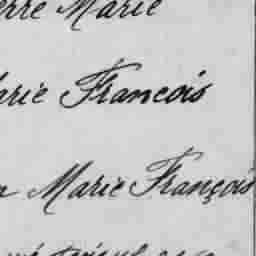 erre Marie
arie Francois
Marie François